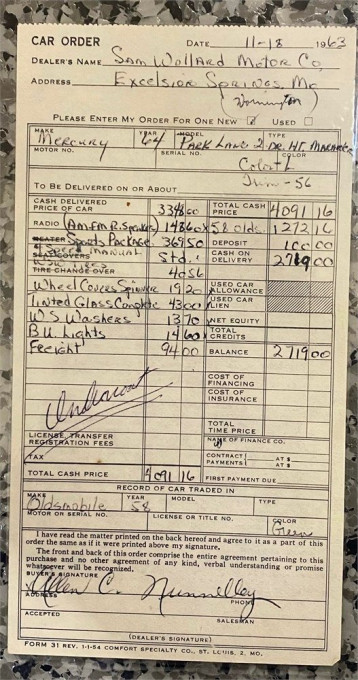 CAR ORDER DATE 11-18 1963
DEALER'S NAME Sam Wollard Motor Co,
ADDRESS Excelsior Springs, Mo
PLEASE ENTER MY ORDER FOR ONE NEW USED
MAKE YEAR MODEL TYPE
Mercury 64 Park Lane 2 Dr. HT.
MOTOR NO. SERIAL NO. COLOR
Color L
TO BE DELIVERED ON OR ABOUT
CASH DELIVERED PRICE OF CAR TOTAL CASH PRICE 4091 16
RADIO 58 Olds. 1272 16
HEATER Sports Package 369 50 DEPOSIT 100 00
4 Speed Manual Std. CASH ON DELIVERY
TIRE CHANGE OVER 40 56
Wheel Covers Spinner 19 20 USED CAR ALLOWANCE
Tinted Glass Complete 43 00 USED CAR LIEN
W S Washers 13 70 NET EQUITY
B.U. Lights TOTAL CREDITS
Freight 94 00 BALANCE 2719 00
COST OF FINANCING
COST OF INSURANCE
Undercoat
TOTAL TIME PRICE
LICENSE, TRANSFER REGISTRATION FEES NAME OF FINANCE CO.
TAX CONTRACT PAYMENTS AT $ AT $
TOTAL CASH PRICE 4091 16 FIRST PAYMENT DUE
RECORD OF CAR TRADED IN
MAKE YEAR MODEL TYPE
Oldsmobile 58
MOTOR OR SERIAL NO. LICENSE OR TITLE NO. COLOR
Green
I have read the matter printed on the back hereof and agree to it as a part of this
order the same as if it were printed above my signature.
The front and back of this order comprise the entire agreement pertaining to this
purchase and no other agreement of any kind, verbal understanding or promise
whatsoever will be recognized.
BUYER'S SIGNATURE
Allen C. Nunnelley
ADDRESS PHONE
ACCEPTED SALESMAN
(DEALER'S SIGNATURE)
FORM 31 REV. 1-1-54 COMFORT SPECIALTY CO., ST. LOUIS, 2, MO.